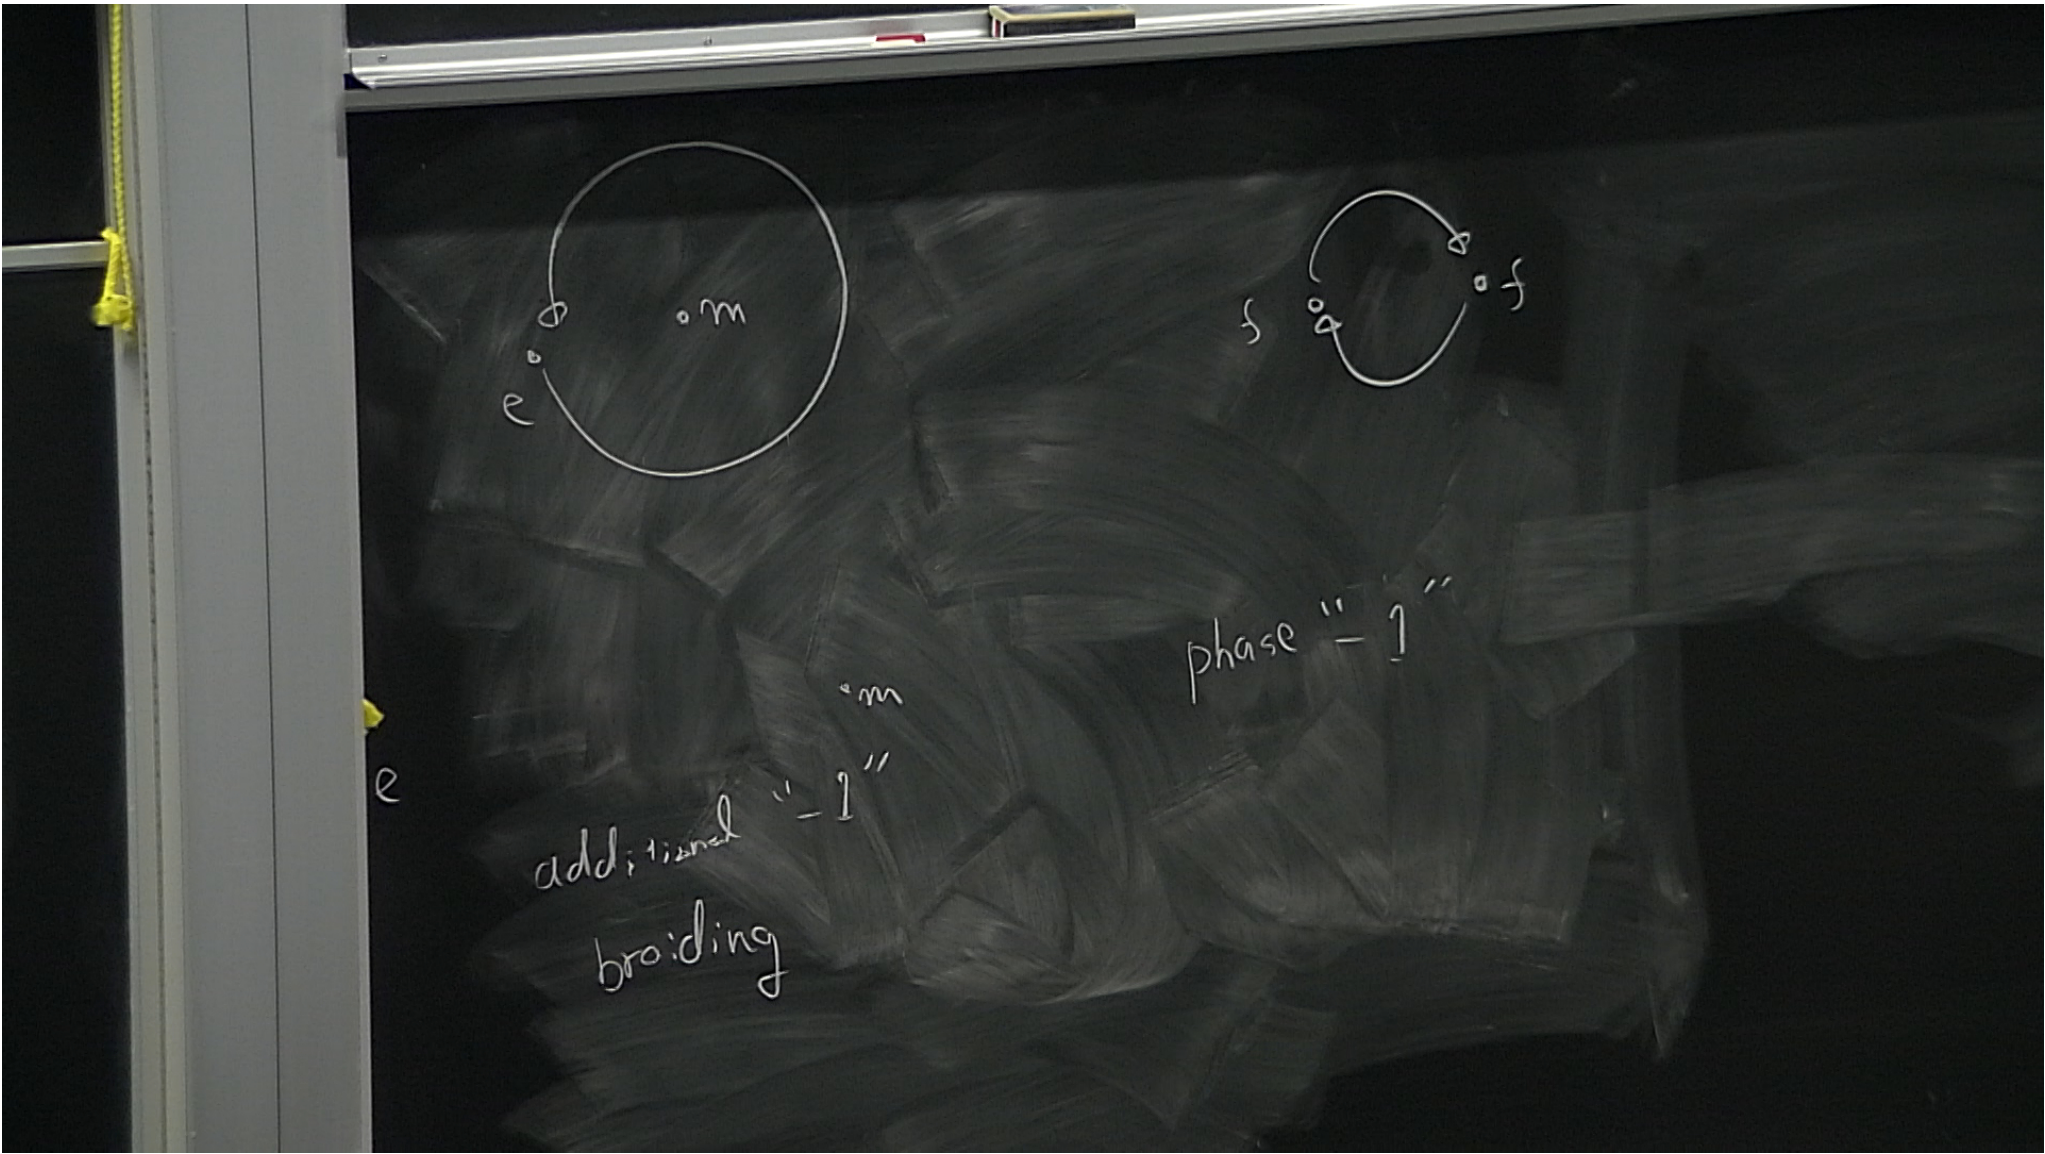 m
e
f
f
phase "-1"
m
e
additional "-1"
braiding